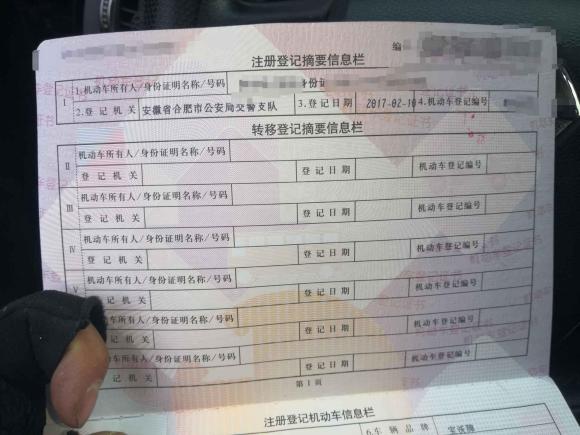 注册登记摘要信息栏
编
I 1.机动车所有人/身份证明名称/号码 身份证
2.登记机关 安徽省合肥市公安局交警支队 3.登记日期 2017-02-10 4.机动车登记编号
转移登记摘要信息栏
II 机动车所有人/身份证明名称/号码
登记机关 登记日期 机动车登记编号
III 机动车所有人/身份证明名称/号码
登记机关 登记日期 机动车登记编号
IV 机动车所有人/身份证明名称/号码
登记机关 登记日期 机动车登记编号
V 机动车所有人/身份证明名称/号码
登记机关 登记日期 机动车登记编号
动车所有人/身份证明名称/号码
登记日期 机动车登记编号
动车所有人/身份证明名称/号码
登记机关 登记日期 机动车登记编号
第1页
注册登记机动车信息栏
6.车辆品牌